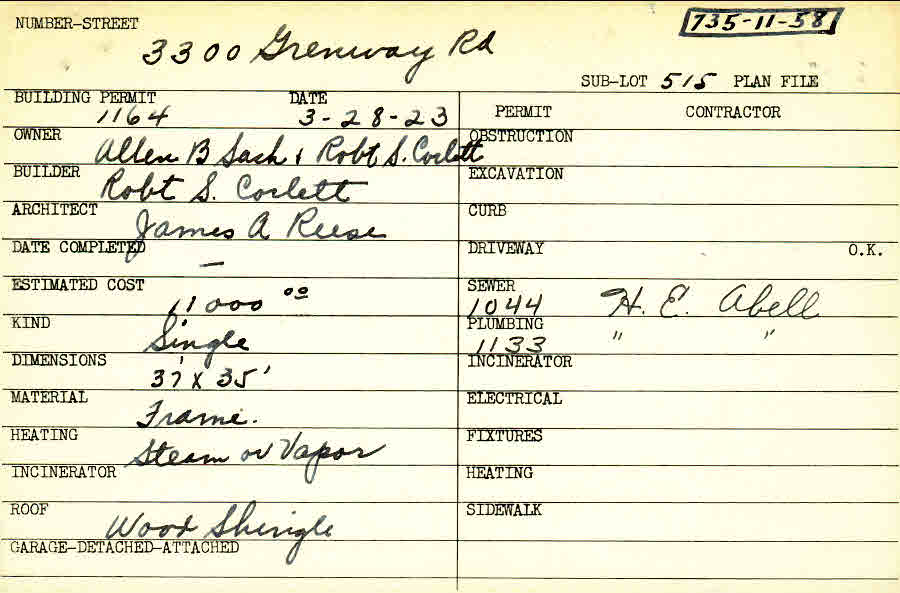 NUMBER-STREET 735-11-58
3300 Grenway Rd
SUB-LOT 515 PLAN FILE
BUILDING PERMIT DATE PERMIT CONTRACTOR
1164 3-28-23
OWNER OBSTRUCTION
Allen B Sach & Robt S. Corlett
BUILDER EXCAVATION
Robt S. Corlett
ARCHITECT CURB
James A Reese
DATE COMPLETED DRIVEWAY O.K.
—
ESTIMATED COST SEWER
11000 00 1044 H. E. Abell
KIND PLUMBING
Single 1133 " "
DIMENSIONS INCINERATOR
37' x 35'
MATERIAL ELECTRICAL
Frame.
HEATING FIXTURES
Steam or Vapor
INCINERATOR HEATING
ROOF SIDEWALK
Wood Shingle
GARAGE-DETACHED-ATTACHED